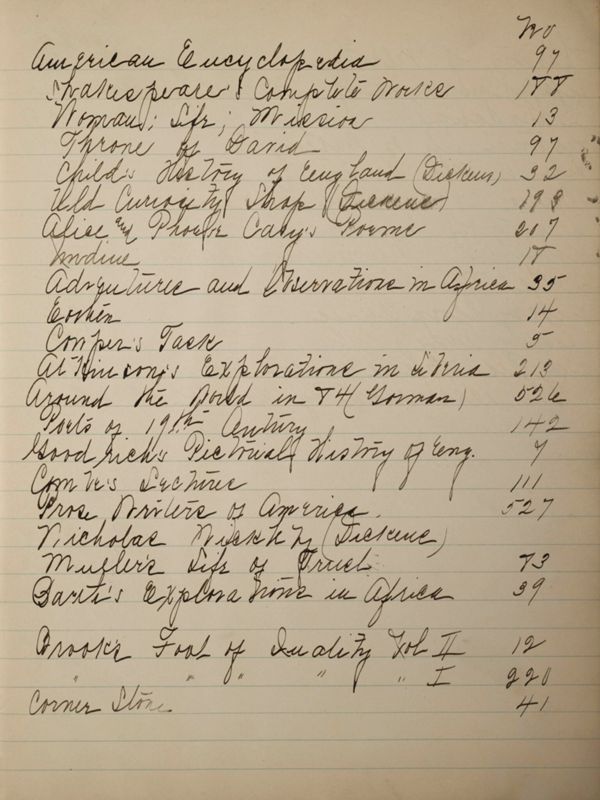 No
American Encyclopedia 97
Shakespeare's Complete Works 188
Woman; Life; Mission 13
Throne of David 97
Child's History of England (Dickens) 32
Old Curiosity Shop (Dickens) 198
Alice and Phoebe Cary's Poems 207
Undine 18
Adventures and Observations in Africa 35
Eothen 14
Cowper's Task 5
Atkinson's Explorations in Siberia 213
Around the World in 84 (Gorman) 526
Poets of 19th Century 142
Goodrich's Pictorial History of Eng. 7
Comte's Lecture 111
Prose Writers of America. 527
Nicholas Nickleby (Dickens)
Muller's Life of Trust 83
Barth's Explorations in Africa 39
Brook's Fool of Quality Vol II 12
" " " " " I 220
Corner Stone 41